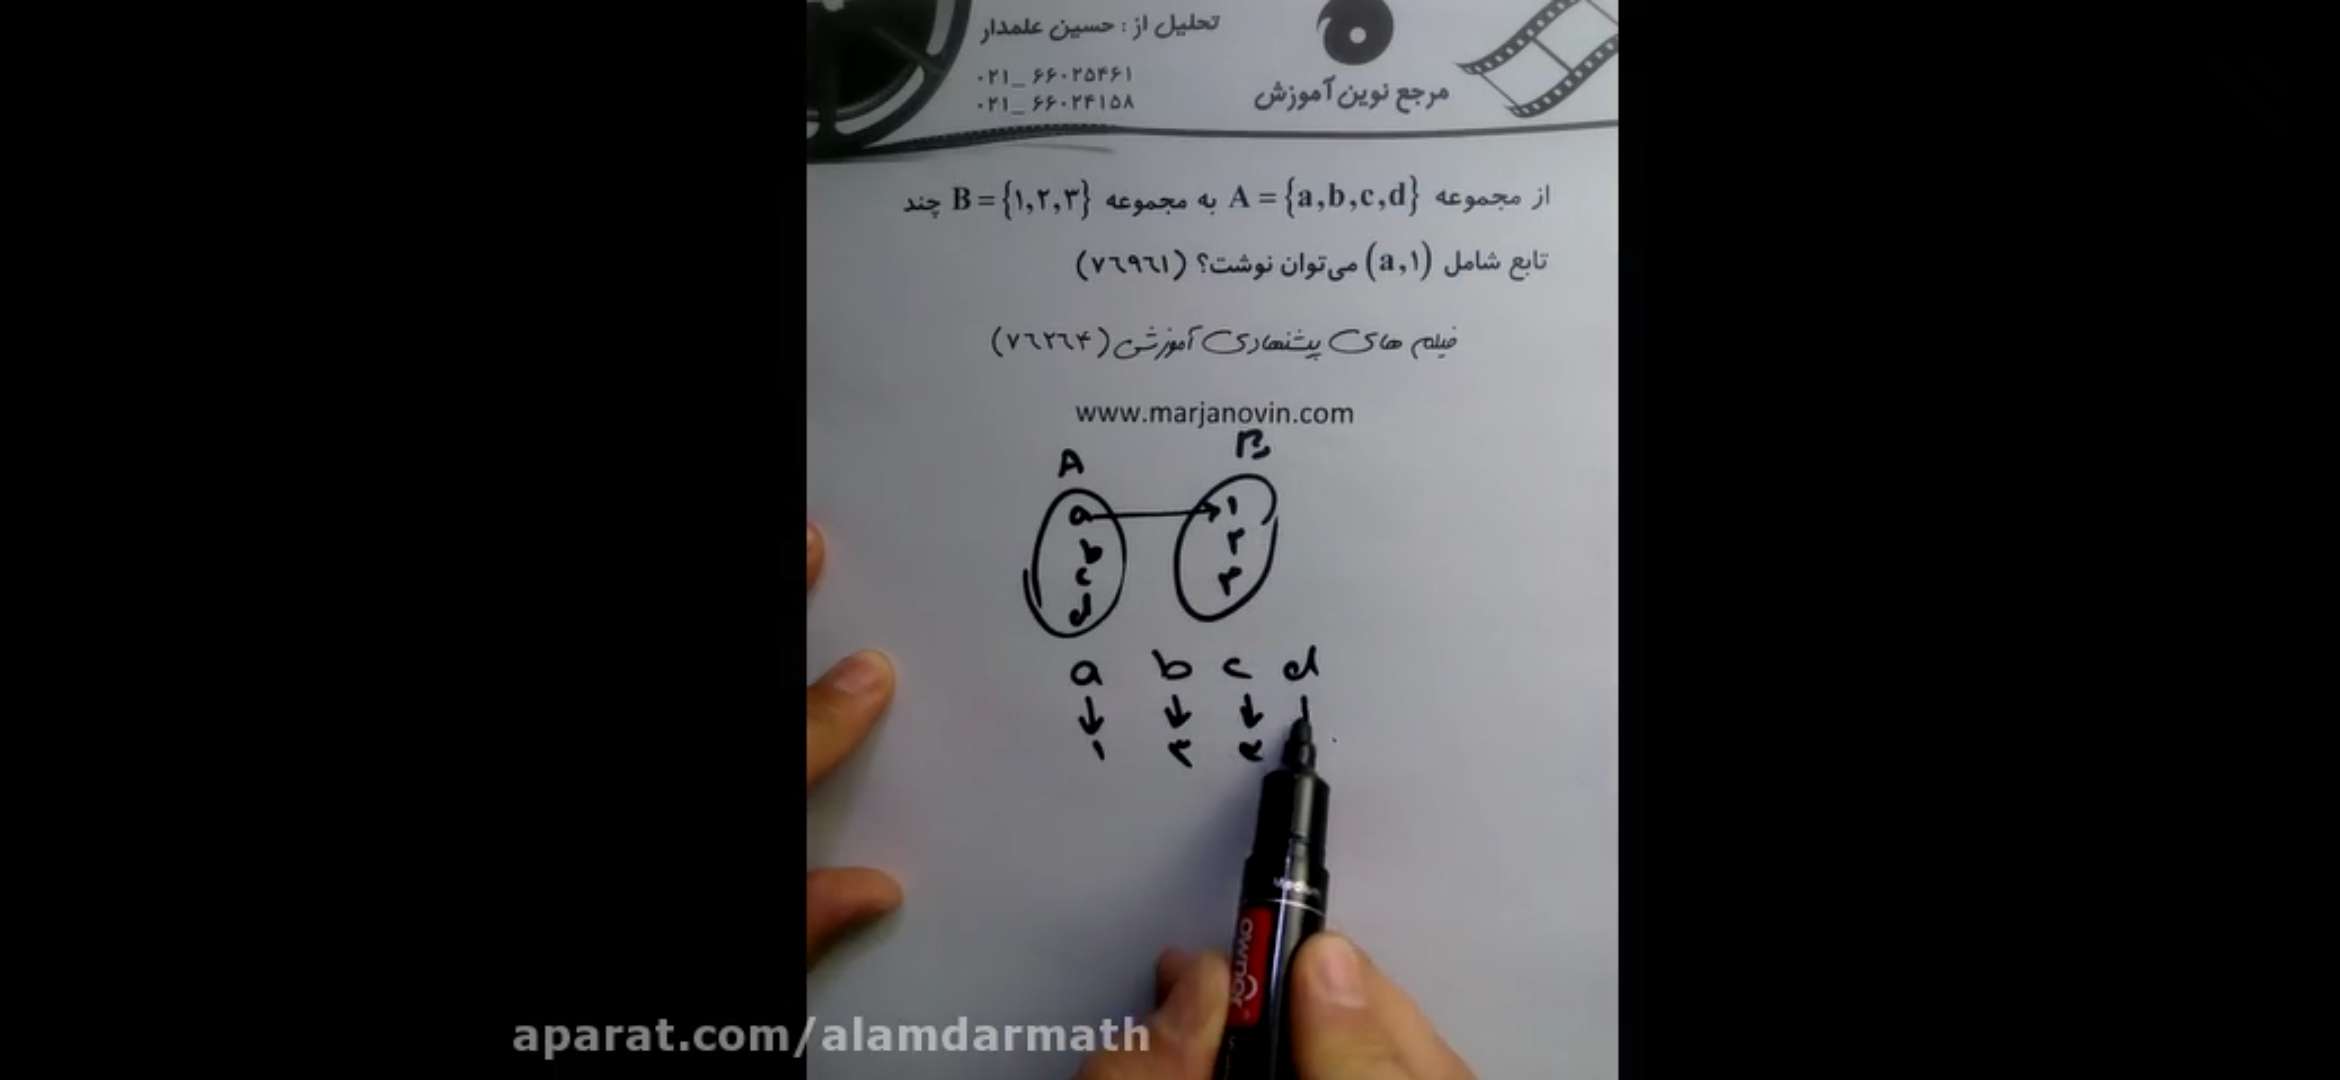 تحلیل از : حسین علمدار
۰۲۱_ ۶۶۰۲۵۴۶۱
۰۲۱_ ۶۶۰۲۴۱۵۸
مرجع نوین آموزش
از مجموعه A = {a,b,c,d} به مجموعه B = {۱,۲,۳} چند
تابع شامل (a,۱) می‌توان نوشت؟ (۷۶۹۶۱)
فیلم های پیشنهادی آموزشی (۷۶۲۶۴)
www.marjanovin.com
A B
a ۱
b ۲
c ۳
d
a b c d
↓ ↓ ↓
۱ ۳
owner
aparat.com/alamdarmath